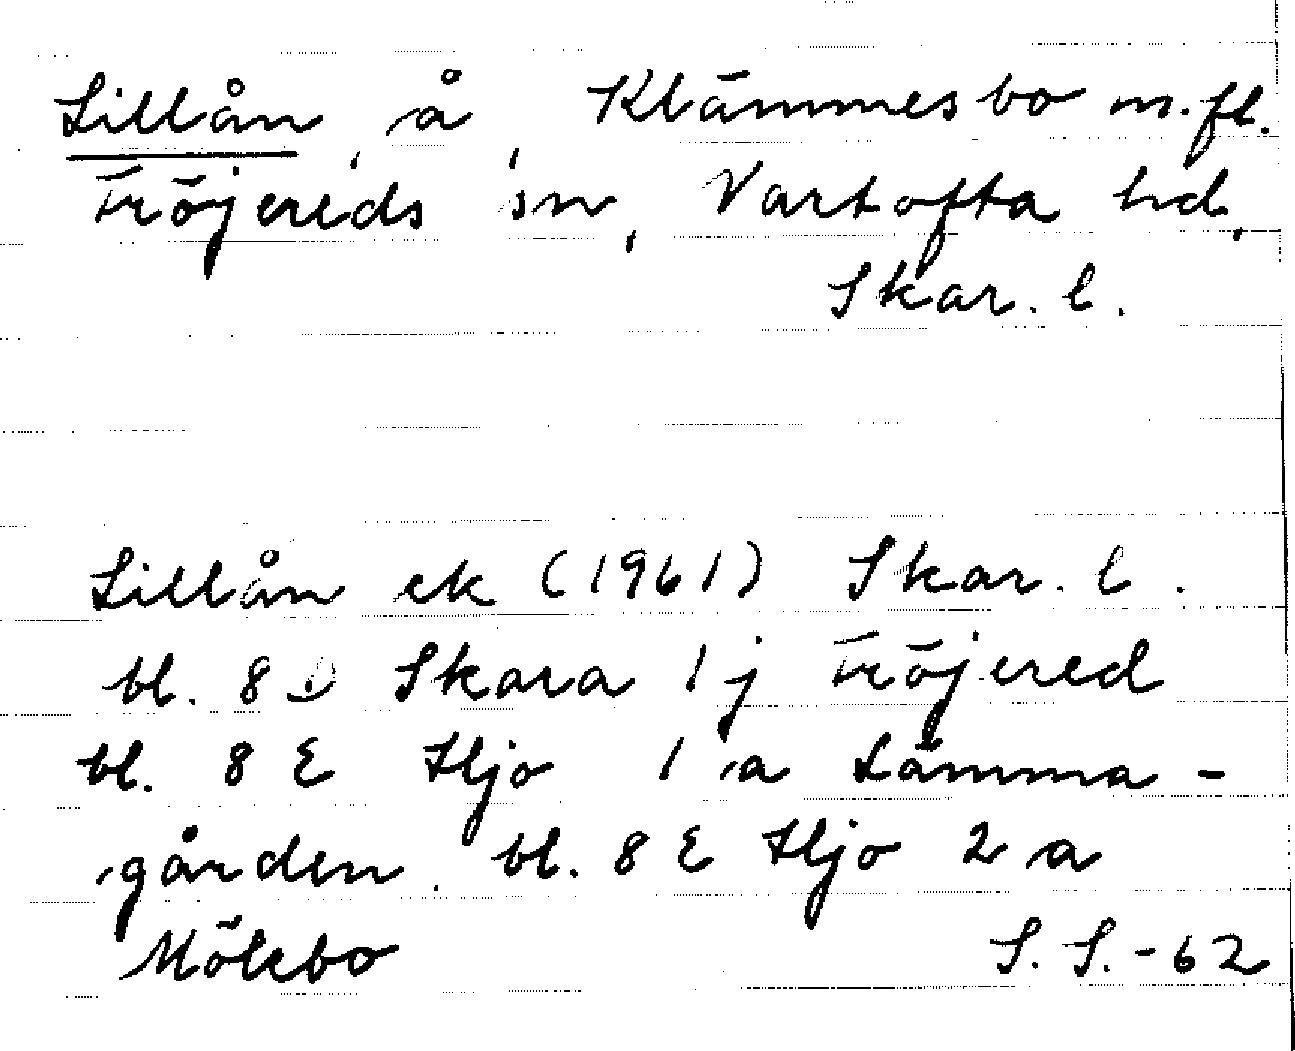 Lillån, å, Klämmesbo m.fl.
Fröjereds sn, Vartofta hd,
Skar. l.
Lillån ek (1961) Skar. l.
bl. 8 D Skara 1 j Fröjered
bl. 8 E Hjo 1 a Lämma-
gården. bl. 8 E Hjo 2 a
Mölebo S. S. -62